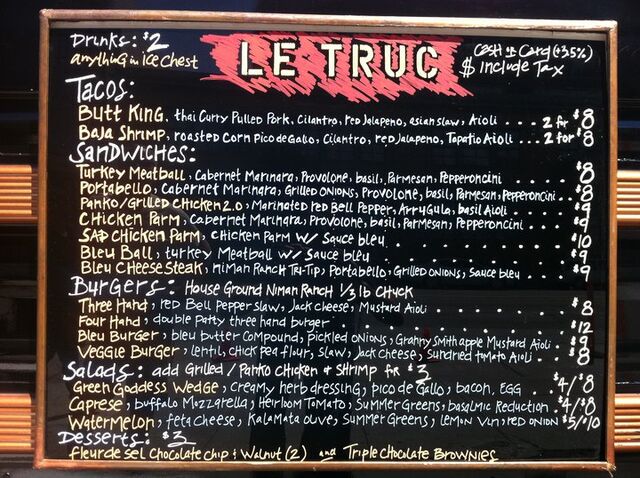 Drinks: $2
anything in ice chest
LE TRUC
Cash or Card (+35%)
$ include Tax
Tacos:
Butt King, thai Curry Pulled Pork, Cilantro, red Jalapeno, asian slaw, Aioli . . . 2 for $8
Baja Shrimp, roasted corn Pico de Gallo, Cilantro, red Jalapeno, Tapatio Aioli . . 2 for $8
Sandwiches:
Turkey Meatball, Cabernet Marinara, Provolone, basil, Parmesan, Pepperoncini . . . $8
Portabello, Cabernet Marinara, Grilled Onions, Provolone, basil, Parmesan, Pepperoncini . . $8
Panko/Grilled Chicken 2.0, Marinated red Bell Pepper, Arrygula, basil Aioli . . . . $9
Chicken Parm, Cabernet Marinara, Provolone, basil, Parmesan, Pepperoncini . . . $9
SAP Chicken Parm, Chicken Parm w/ Sauce bleu . . . . . . . . $10
Bleu Ball, turkey Meatball w/ Sauce bleu . . . . . . . . $9
Bleu Cheese Steak, niman Ranch Tri-Tip, Portabello, Grilled onions, Sauce bleu . . . $9
Burgers: House Ground Niman Ranch 1/3 lb Chuck
Three Hand, red Bell Pepper slaw, Jack cheese, Mustard Aioli . . . . . . $8
Four Hand, double Patty three hand burger . . . . . . . . $12
Bleu Burger, bleu butter compound, pickled onions, Granny Smith apple Mustard Aioli . $9
Veggie Burger, lentil, chick pea flour, slaw, Jack cheese, sundried tomato Aioli . . $8
Salads: add Grilled / Panko Chicken & Shrimp for $3
Green Goddess Wedge, creamy herb dressing, pico de Gallo, bacon, EGG . . $4/$8
Caprese, buffalo Mozzarella, Heirloom Tomato, Summer Greens, basalmic Reduction . $4/$8
Watermelon, feta cheese, Kalamata olive, Summer Greens, lemon vin, red onion $5/$10
Desserts: $3
fleur de sel Chocolate chip & Walnut (2) and Triple Chocolate Brownies